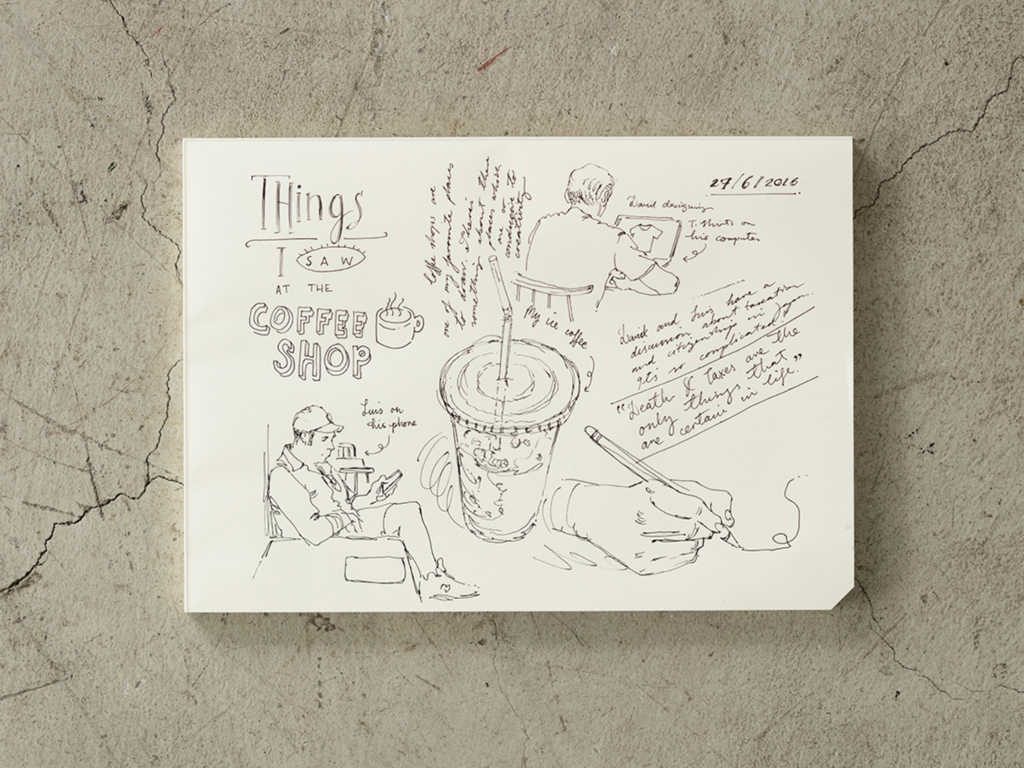 Things
I SAW
AT THE
COFFEE
SHOP
Coffee shops are
one of my favourite places
to draw. There's
something about them
and those whole
are on
conducive to
creativity
27/6/2016
David designing
T-Shirts on
his computer
My ice coffee
David and Luis have a
discussion about taxation
and citizenship in
It's so complicated
"Death & taxes are the
only things that
are certain in life."
Luis on
his phone